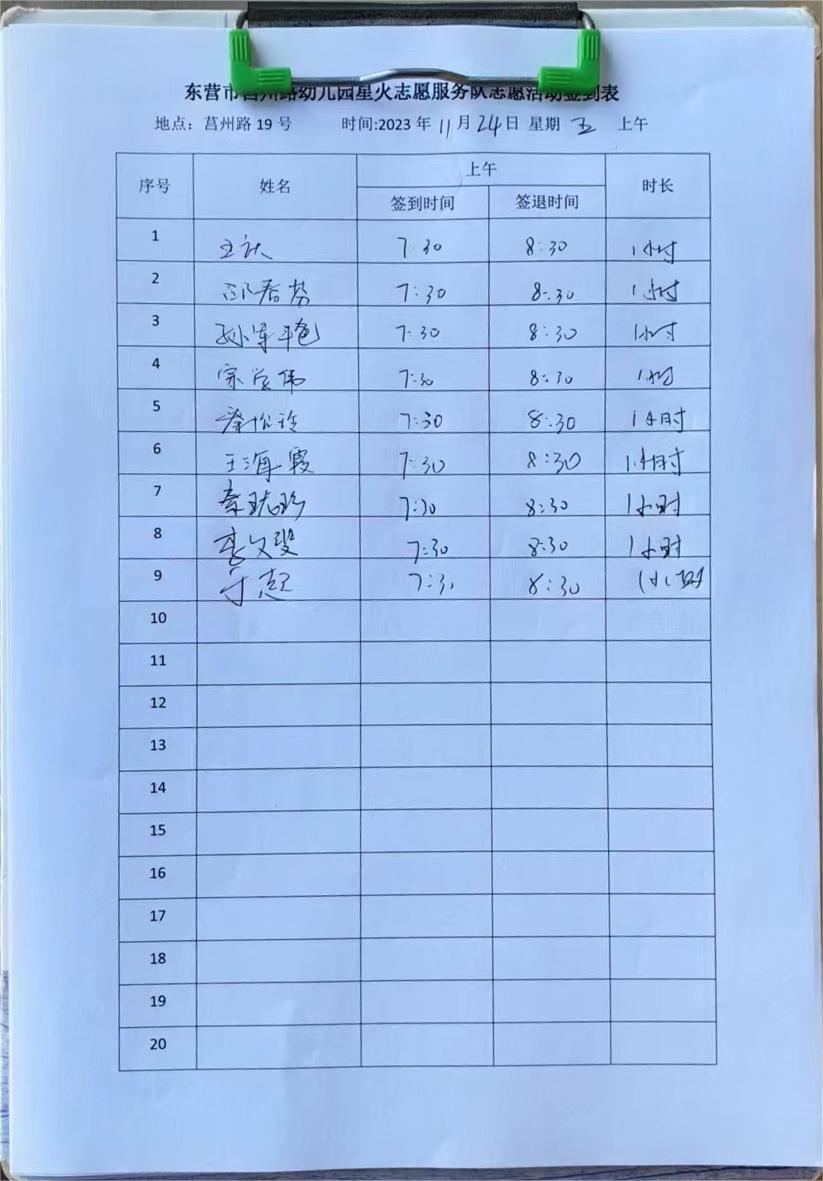 东营市莒州路幼儿园星火志愿服务队志愿活动签到表
地点：莒州路 19 号 时间:2023 年 11 月 24 日 星期 五 上午
序号 姓名 上午 时长
签到时间 签退时间
1 7:30 8:30 1小时
2 7:30 8:30 1小时
3 7:30 8:30 1小时
4 7:30 8:30 1小时
5 7:30 8:30 1小时
6 王海霞 7:30 8:30 1小时
7 7:30 8:30 1小时
8 7:30 8:30 1小时
9 7:30 8:30 1小时
10
11
12
13
14
15
16
17
18
19
20